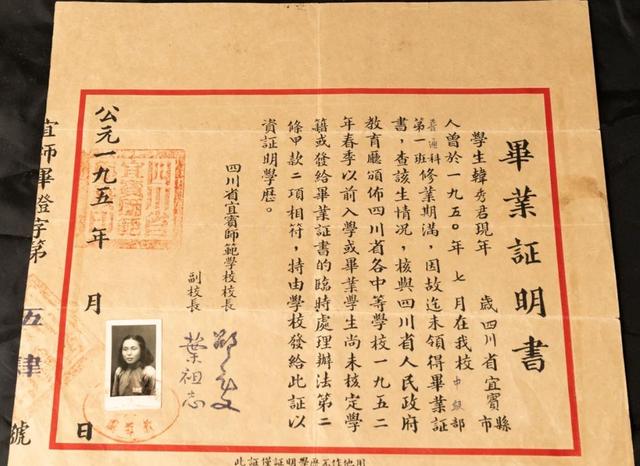 畢業証明書
學生韓秀君現年 歲四川省宜賓縣市
人曾於一九五〇年七月在我校中級部
普通科第一班修業期滿，因故迄未領得畢業証
書，查該生情況，核與四川省人民政府
教育廳頒佈四川省各中等學校一九五二
年春季以前入學或畢業學生尚未核定學
籍或發給畢業証書的臨時處理辦法第二
條甲款二項相符，持由學校發給此証以
資証明學歷。
四川省宜賓師範學校校長
副校長 葉祖志
公元一九五 年 月 日
宜師畢證字第 五肆 號
此証僅証明學歷不作他用